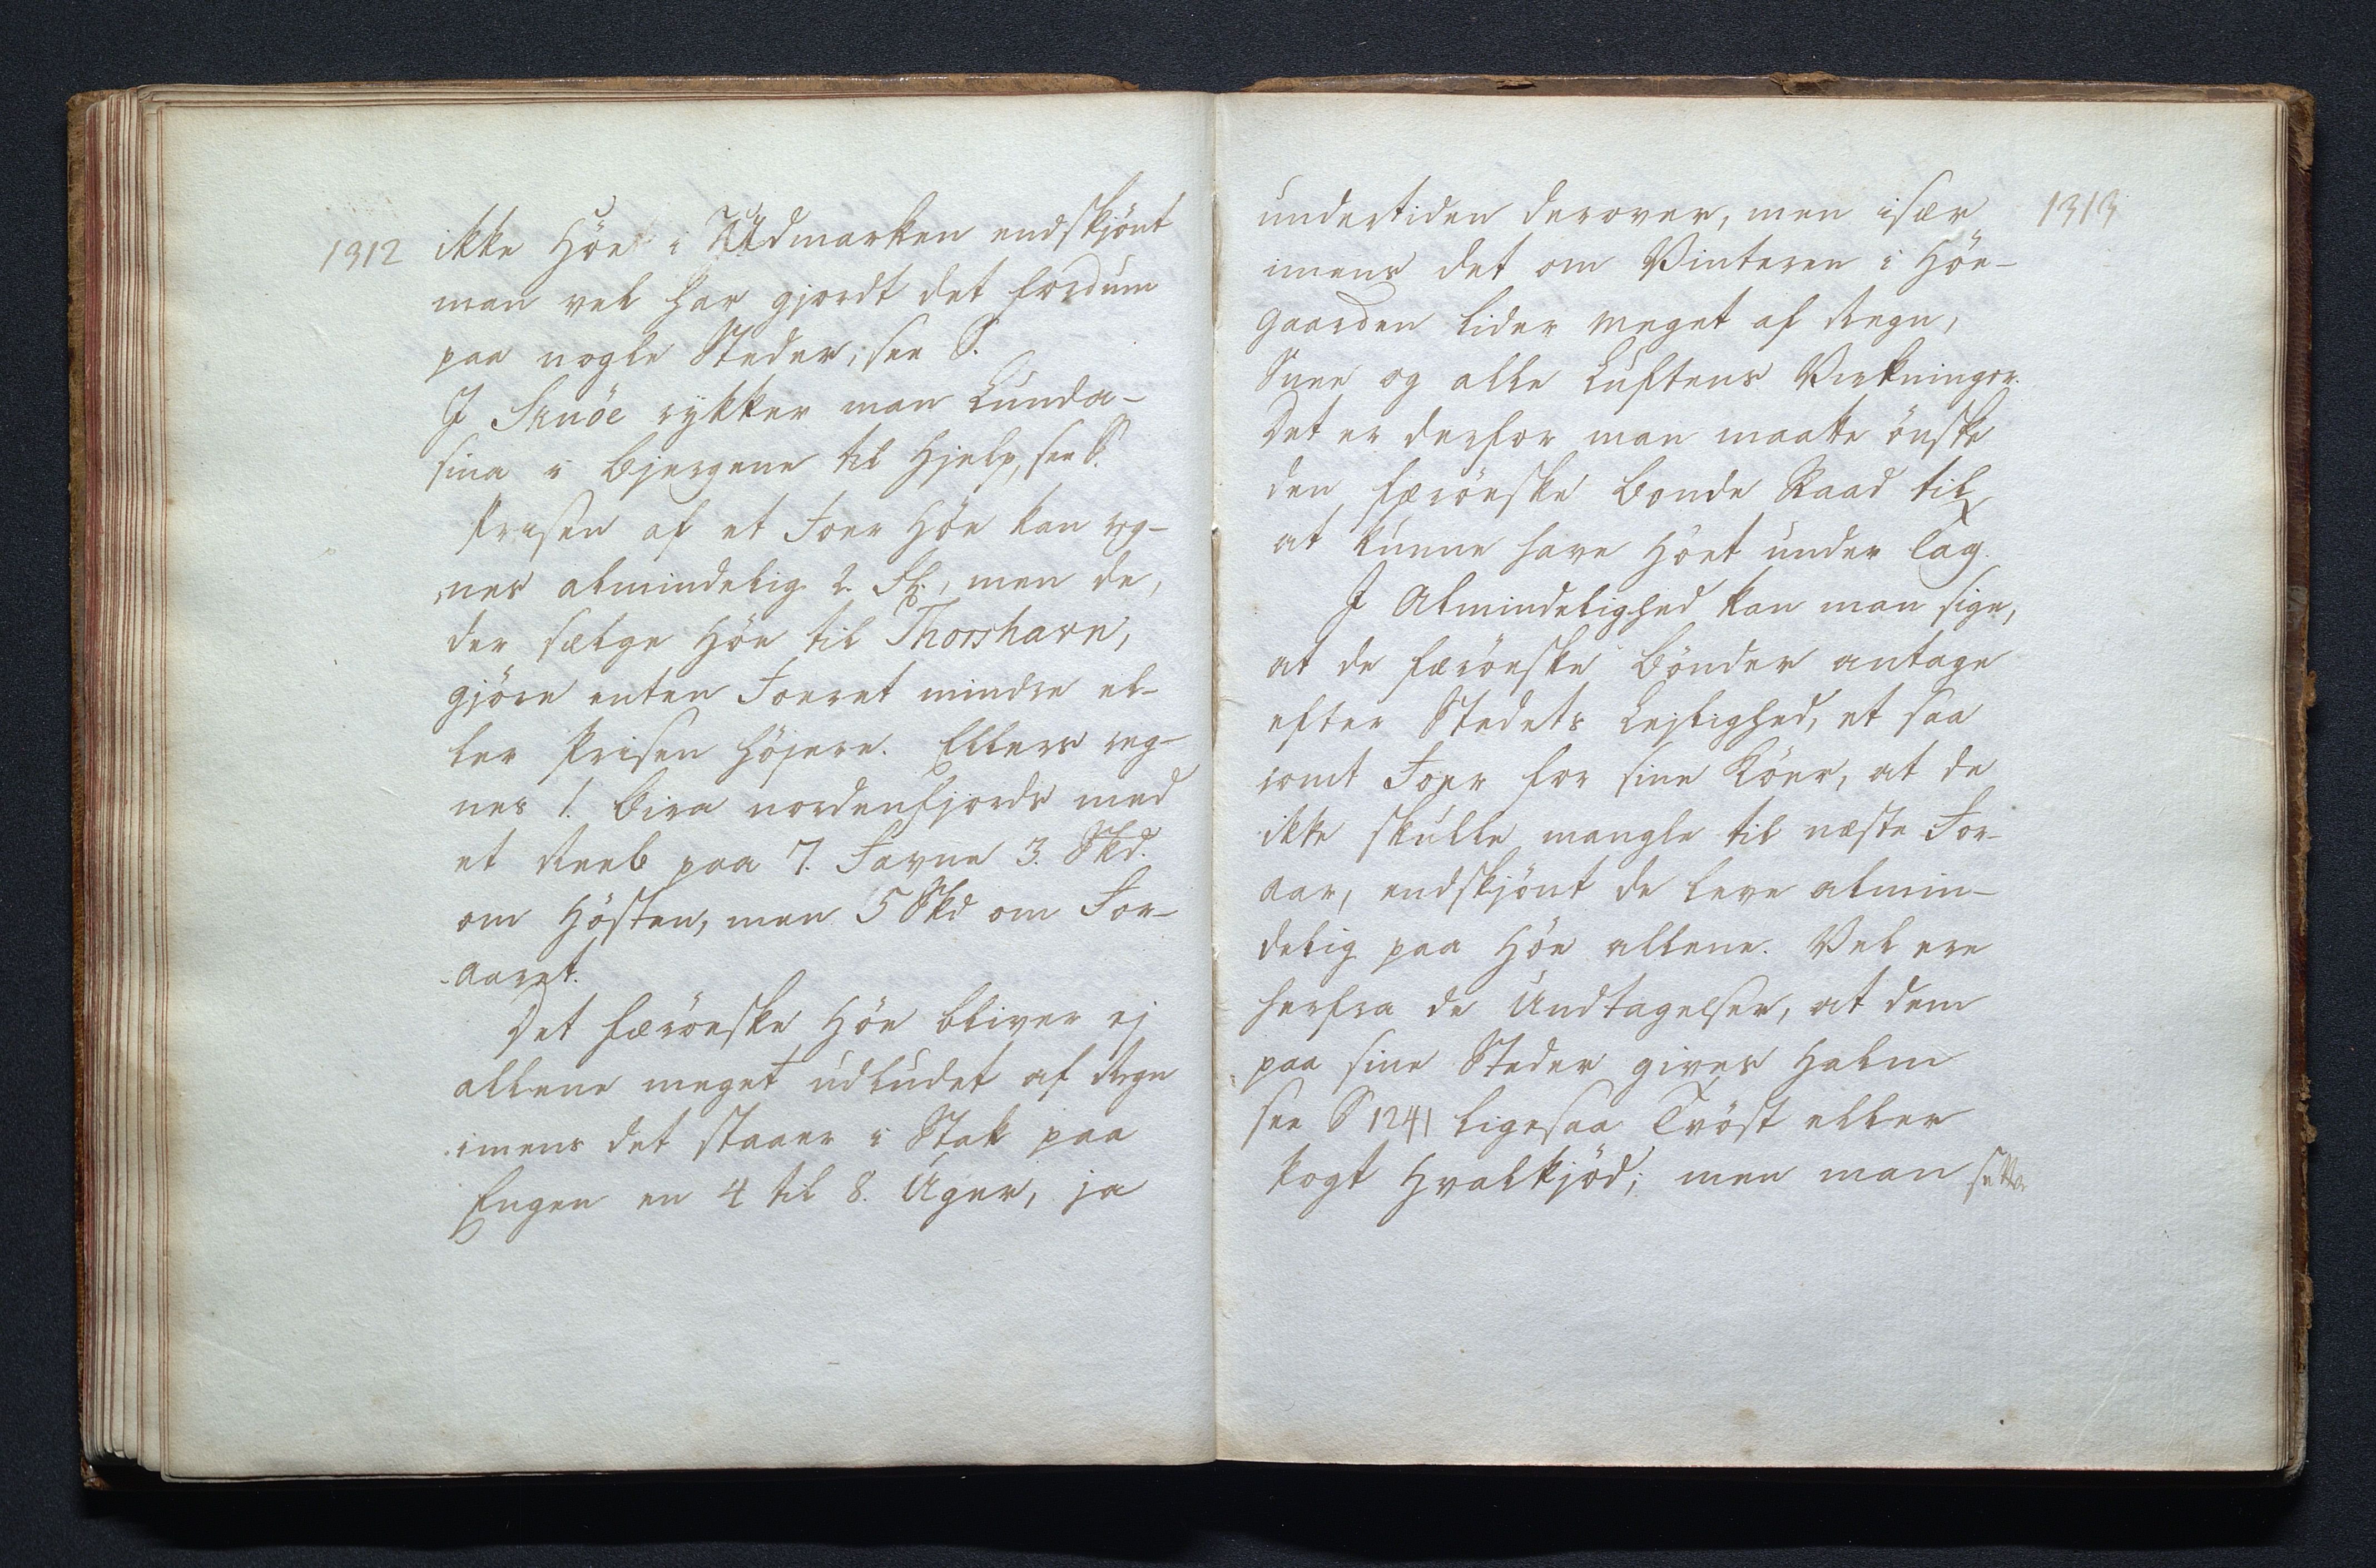 1312
ikke Höe i Udmarken endskjönt
man vel har gjordt det fordum
paa nogle Steder, see S.
I Skuöe rykker man Lunda-
sina i Bjergene til Hjelp, see S.
Prisen af et Foer Höe kan reg-
nes almindelig 2. , men de,
der sælge Höe til Thorshavn,
gjöre enten Foeret mindre el-
ler Prisen höjere. Ellers reg-
nes 1. Bira nordenfjords med
et Reeb paa 7. Favne 3. Skd.
om Hösten, men 5 Skd om For-
aaret.
Det færöeske Höe bliver ej
allene meget udludet af Regn
imens det staaer i Stak paa
Engen en 4 til 8. Uger, ja
1313
undertiden derover, men især
imens det om Vinteren i Höe-
gaarden lider meget af Regn,
Snee og alle Luftens Virkninger.
Det er derfor man maatte önske
den færöeske Bonde Raad til
at kunne have Höet under Tag.
I Almindelighed kan man sige,
at de færöeske Bönder antage
efter Stedets Lejlighed, et saa
somt Foer for sine Köer, at de
ikke skulle mangle til næste For-
aar, endskjönt de leve almin-
delig paa Höe allene. Vel ere
herfra de Undtagelser, at dem
paa sine Steder gives Halm
see S 1241 ligesaa Tröst eller
kogt Hvalkjöd; men man setter